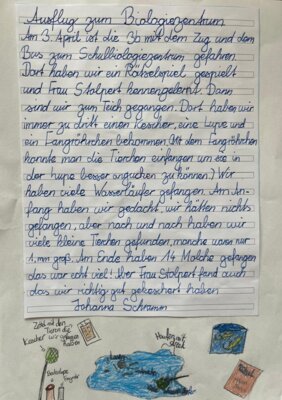 Ausflug zum Biologiezentrum
Am 3. April ist die 3b mit dem Zug und dem
Bus zum Schulbiologiezentrum gefahren.
Dort haben wir ein Rätselspiel gespielt
und Frau Stolpert kennengelernt. Dann
sind wir zum Teich gegangen. Dort haben wir
immer zu dritt einen Kescher, eine Lupe und
ein Fangröhrchen bekommen. (Mit dem Fangröhrchen
konnte man die Tierchen einfangen um sie in
der Lupe besser angucken zu können.) Wir
haben viele Wasserläufer gefangen. Am An-
fang haben wir gedacht, wir hätten nichts
gefangen, aber nach und nach haben wir
viele kleine Tierchen gefunden, manche waren nur
1 mm groß. Am Ende haben 14 Molche gefangen
das war echt viel! Aber Frau Stolpert fand auch
das wir richtig gut gekeschert haben.
Johanna Schramm
Zettel mit den
Tieren die
wir gefangen
Kescher